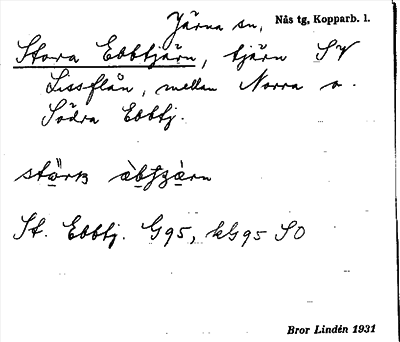 Järna sn, Nås tg, Kopparb. l.
Stora Ebbtjärn, tjärn SV
Lissflån, mellan Norra o.
Södra Ebbtj.
St. Ebbtj. G95, kG95 SO
Bror Lindén 1931